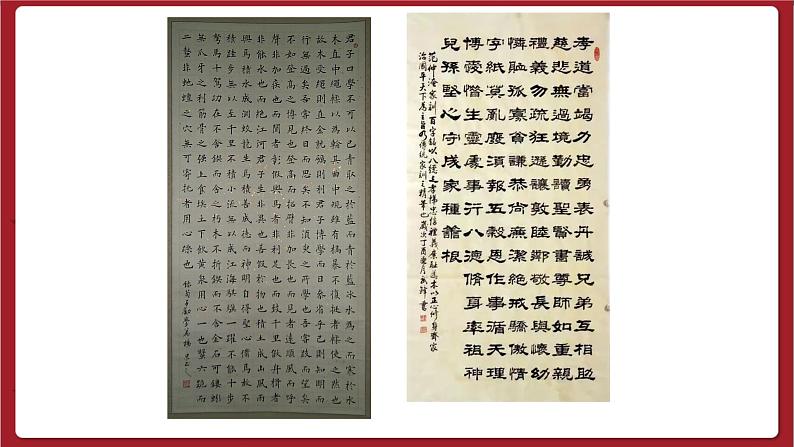 君子曰學不可以已青取之於藍而青於藍冰水為之而寒於水
木直中繩輮以為輪其曲中規雖有槁暴不復挺者輮使之然也
故木受繩則直金就礪則利君子博學而日參省乎己則知明而
行無過矣吾嘗終日而思矣不如須臾之所學也吾嘗跂而望矣
不如登高之博見也登高而招臂非加長也而見者遠順風而呼
聲非加疾也而聞者彰假輿馬者非利足也而致千里假舟楫者
非能水也而絕江河君子生非異也善假於物也積土成山風雨
興焉積水成淵蛟龍生焉積善成德而神明自得聖心備焉故不
積蹞步無以至千里不積小流無以成江海騏驥一躍不能十步
駑馬十駕功在不舍鍥而舍之朽木不折鍥而不舍金石可鏤螾
無爪牙之利筋骨之強上食埃土下飲黃泉用心一也蟹六跪而
二螯非蛇蟺之穴無可寄託者用心躁也 錄荀子勸學
孝道當竭力忠勇表丹誠兄弟互相助
慈悲無過境勤讀聖賢書尊師如重親
禮義勿疏狂遜讓敦睦鄰敬長與懷幼
憐恤孤寡貧謙恭尚廉潔絕戒驕傲情
字紙莫亂廢須報五穀恩作事循天理
博愛惜生靈處事行八德脩身率祖神
兒孫堅心守成家種譱根
范仲淹家訓百字銘以八德之孝悌忠信禮義廉恥為本以正心修身齊家
治國平天下為主旨乃傳統家訓之精華也歲次丁酉